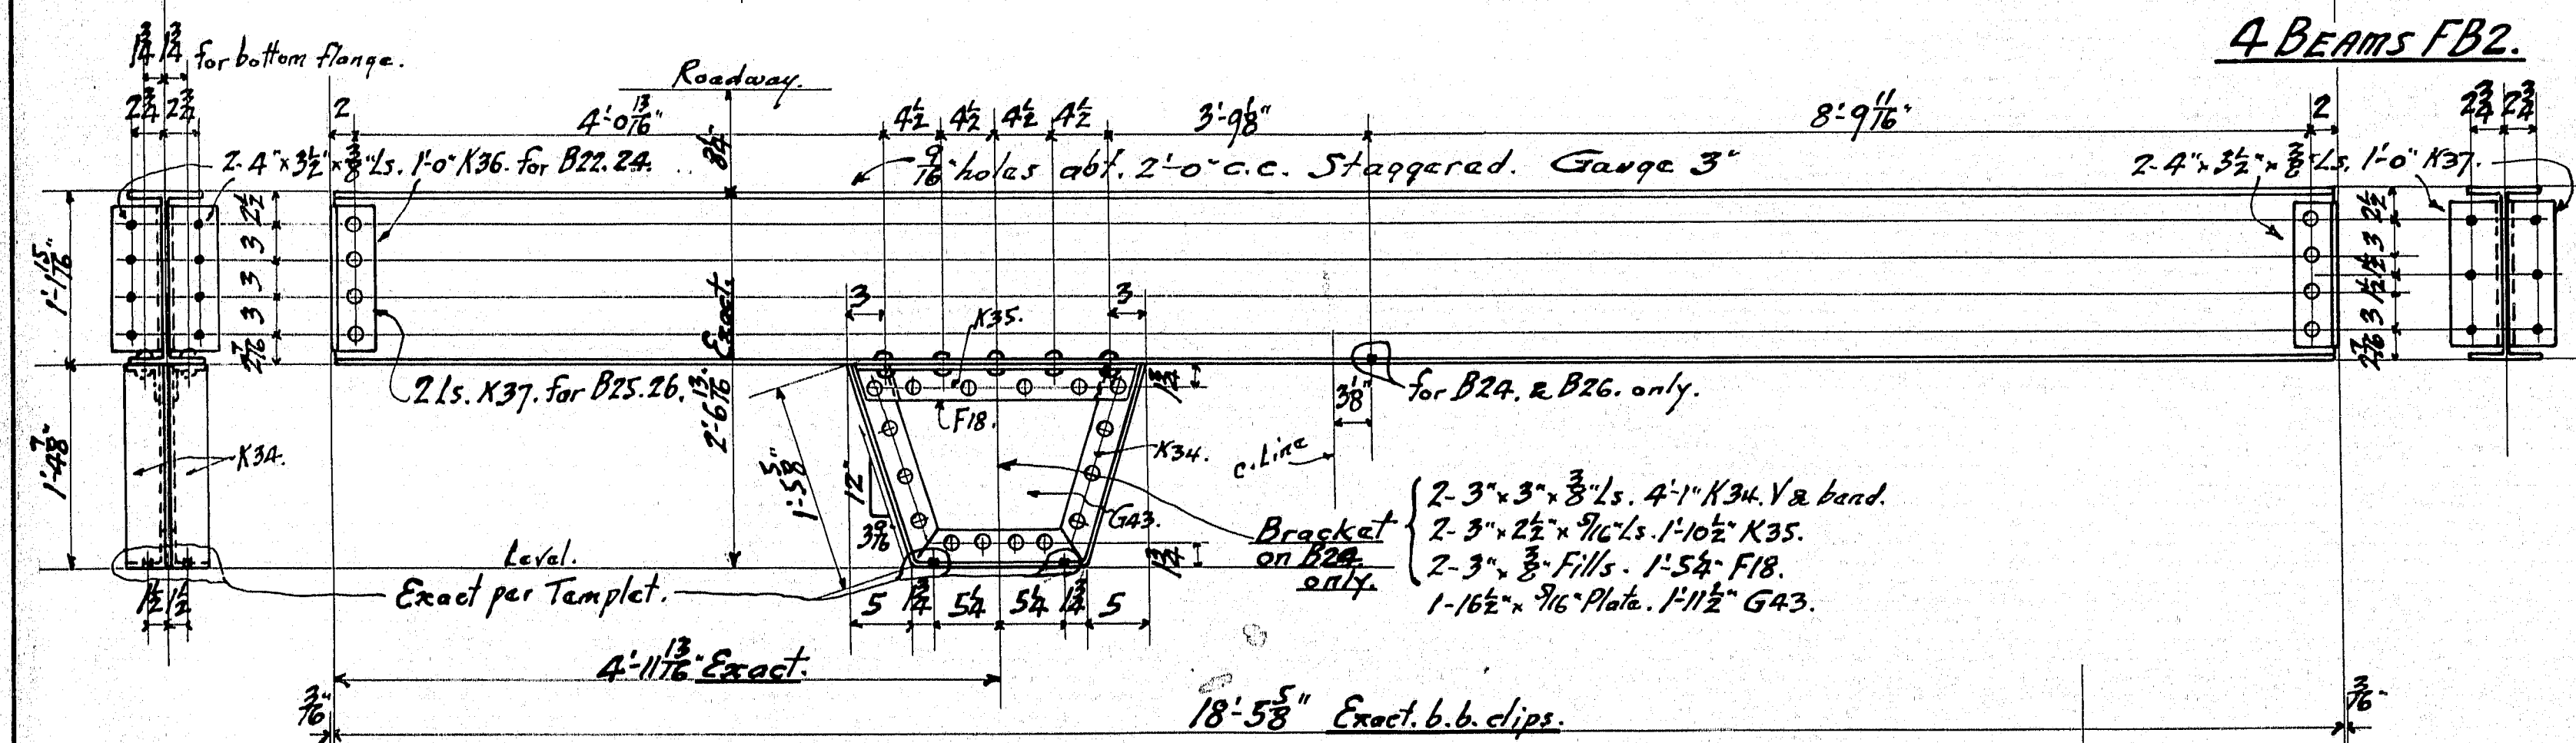 4 BEAMS FB2.
1 3/4 1 3/4 for bottom flange.
Roadway.
2 3/4 2 3/4
2
4'-0 13/16"
8 1/4"
4 1/2 4 1/2 4 1/2 4 1/2
3'-9 1/8"
8'-9 11/16"
2
2 3/4 2 3/4
2-4"x3 1/2"x3/8"Ls. 1'-0" K36. for B22.24.
9/16" holes abt. 2'-0" c.c. Staggered. Gauge 3"
2-4"x3 1/2"x3/8"Ls. 1'-0" K37.
1'-1 15/16"
2 1/2
3
3
3
2 7/16
2 1/2
3
1 1/2
1 1/2
3
2 7/16
3
3
K35.
2 Ls. K37. for B25.26.
2'-6 13/16" Exact.
F18.
1 3/4
3 1/8"
for B24. & B26. only.
1'-4 7/8"
K34.
1'-5 5/8"
12"
3 9/16
K34.
G43.
c. Line
Bracket
on B24
only.
2-3"x3"x3/8"Ls. 4'-1" K34. V & bend.
2-3"x2 1/2"x5/16"Ls. 1'-10 1/2" K35.
2-3"x3/8" Fills. 1'-5 1/4" F18.
1-16 1/2"x5/16" Plate. 1'-11 1/2" G43.
Level.
Exact per Templet.
1 3/4
1 1/2 1 1/2
5 1 3/4 5 1/4 5 1/4 1 3/4 5
4'-11 13/16" Exact.
3/16"
18'-5 5/8" Exact. b.b. clips.
3/16"